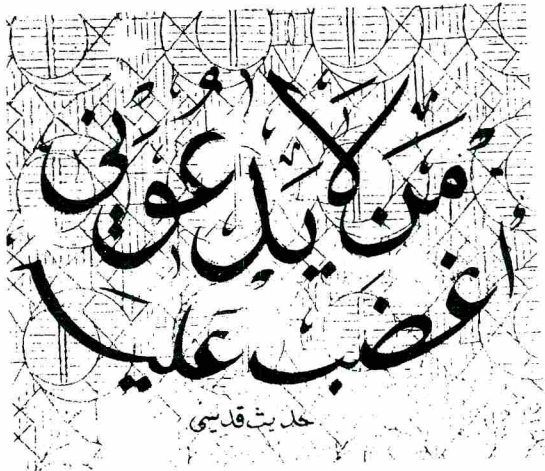 من لا يدعوني
أغضب عليه
حديث قدسي